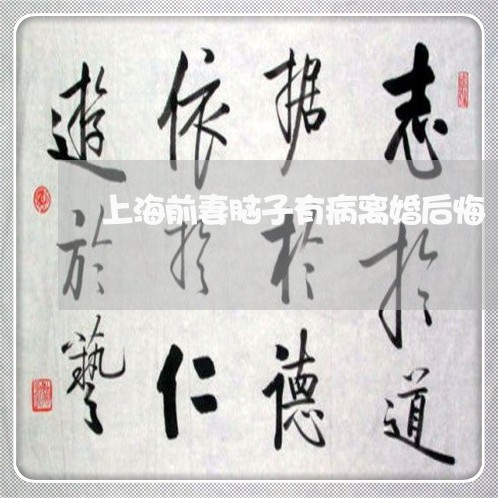 志扵道
据於德
依扵仁
遊於藝
上海前妻脑子有病离婚后悔